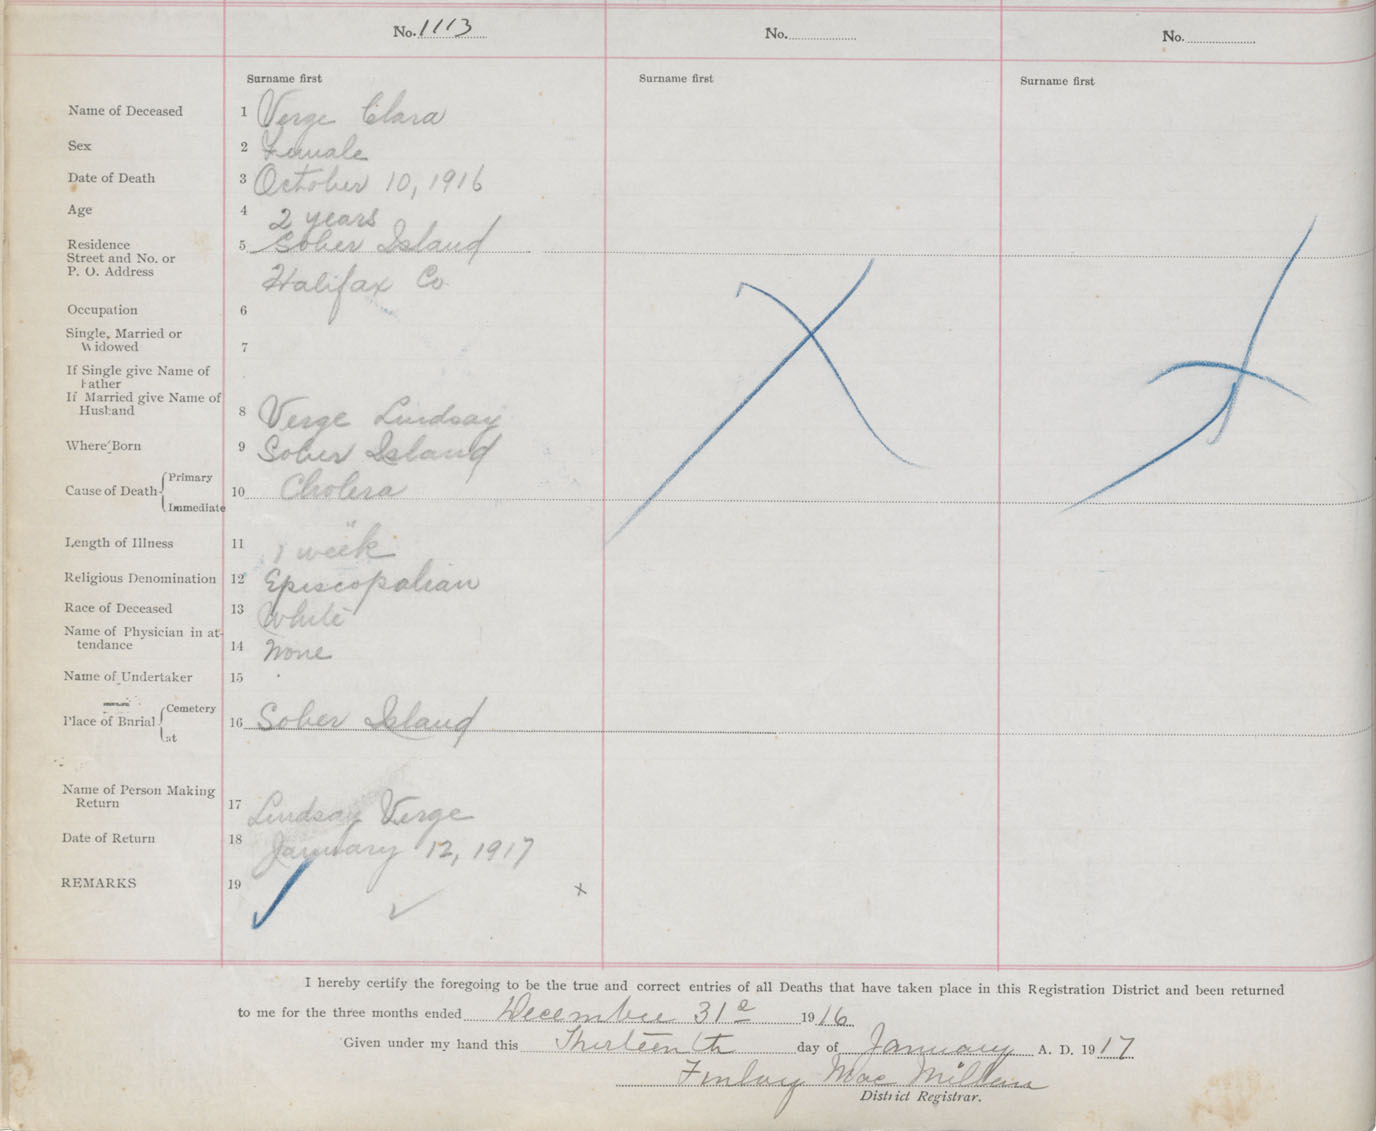 No. 1113
No.
No.
Surname first
Surname first
Surname first
Name of Deceased 1 Verge Clara
Sex 2 Female
Date of Death 3 October 10, 1916
Age 4 2 years
Residence
Street and No. or
P. O. Address
5 Sober Island
Halifax Co
Occupation 6
Single, Married or
Widowed 7
If Single give Name of
Father
If Married give Name of
Husband 8 Verge Lindsay
Where Born 9 Sober Island
Cause of Death
Primary
Immediate
10 Cholera
Length of Illness 11 1 week
Religious Denomination 12 Episcopalian
Race of Deceased 13 White
Name of Physician in at-
tendance 14 None
Name of Undertaker 15
Place of Burial
Cemetery
at
16 Sober Island
Name of Person Making
Return 17 Lindsay Verge
Date of Return 18 January 12, 1917
REMARKS 19
I hereby certify the foregoing to be the true and correct entries of all Deaths that have taken place in this Registration District and been returned
to me for the three months ended December 31st 1916
Given under my hand this Thirteenth day of January A. D. 1917
Finlay Mac Millan
District Registrar.